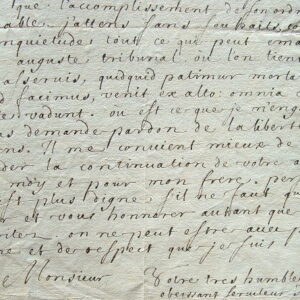 que. l'accomplissement de son ordre
ables j'attens sans souhaits, con
inquietude; tout ce qui peut ema
auguste tribunal ou l'on tient
asservis, quidquid patimur morta
d facimus, venit ex alto: omnia c
vadunt. ou est ce que je m'eng
as demande pardon de la libert
ns. Il me convient mieux de
der la continuation de votre
moy et pour mon frere. per
st plus digne, s'il ne faut qu
r et vous honnorer autant que
on ne peut estre avec p
re et de respect que je suis
Monsieur
Votre tres humble
obeissant serviteur